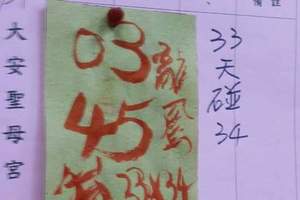 備註
大安聖母宮
03
45
龍鳳
33 34
33
天
碰
34